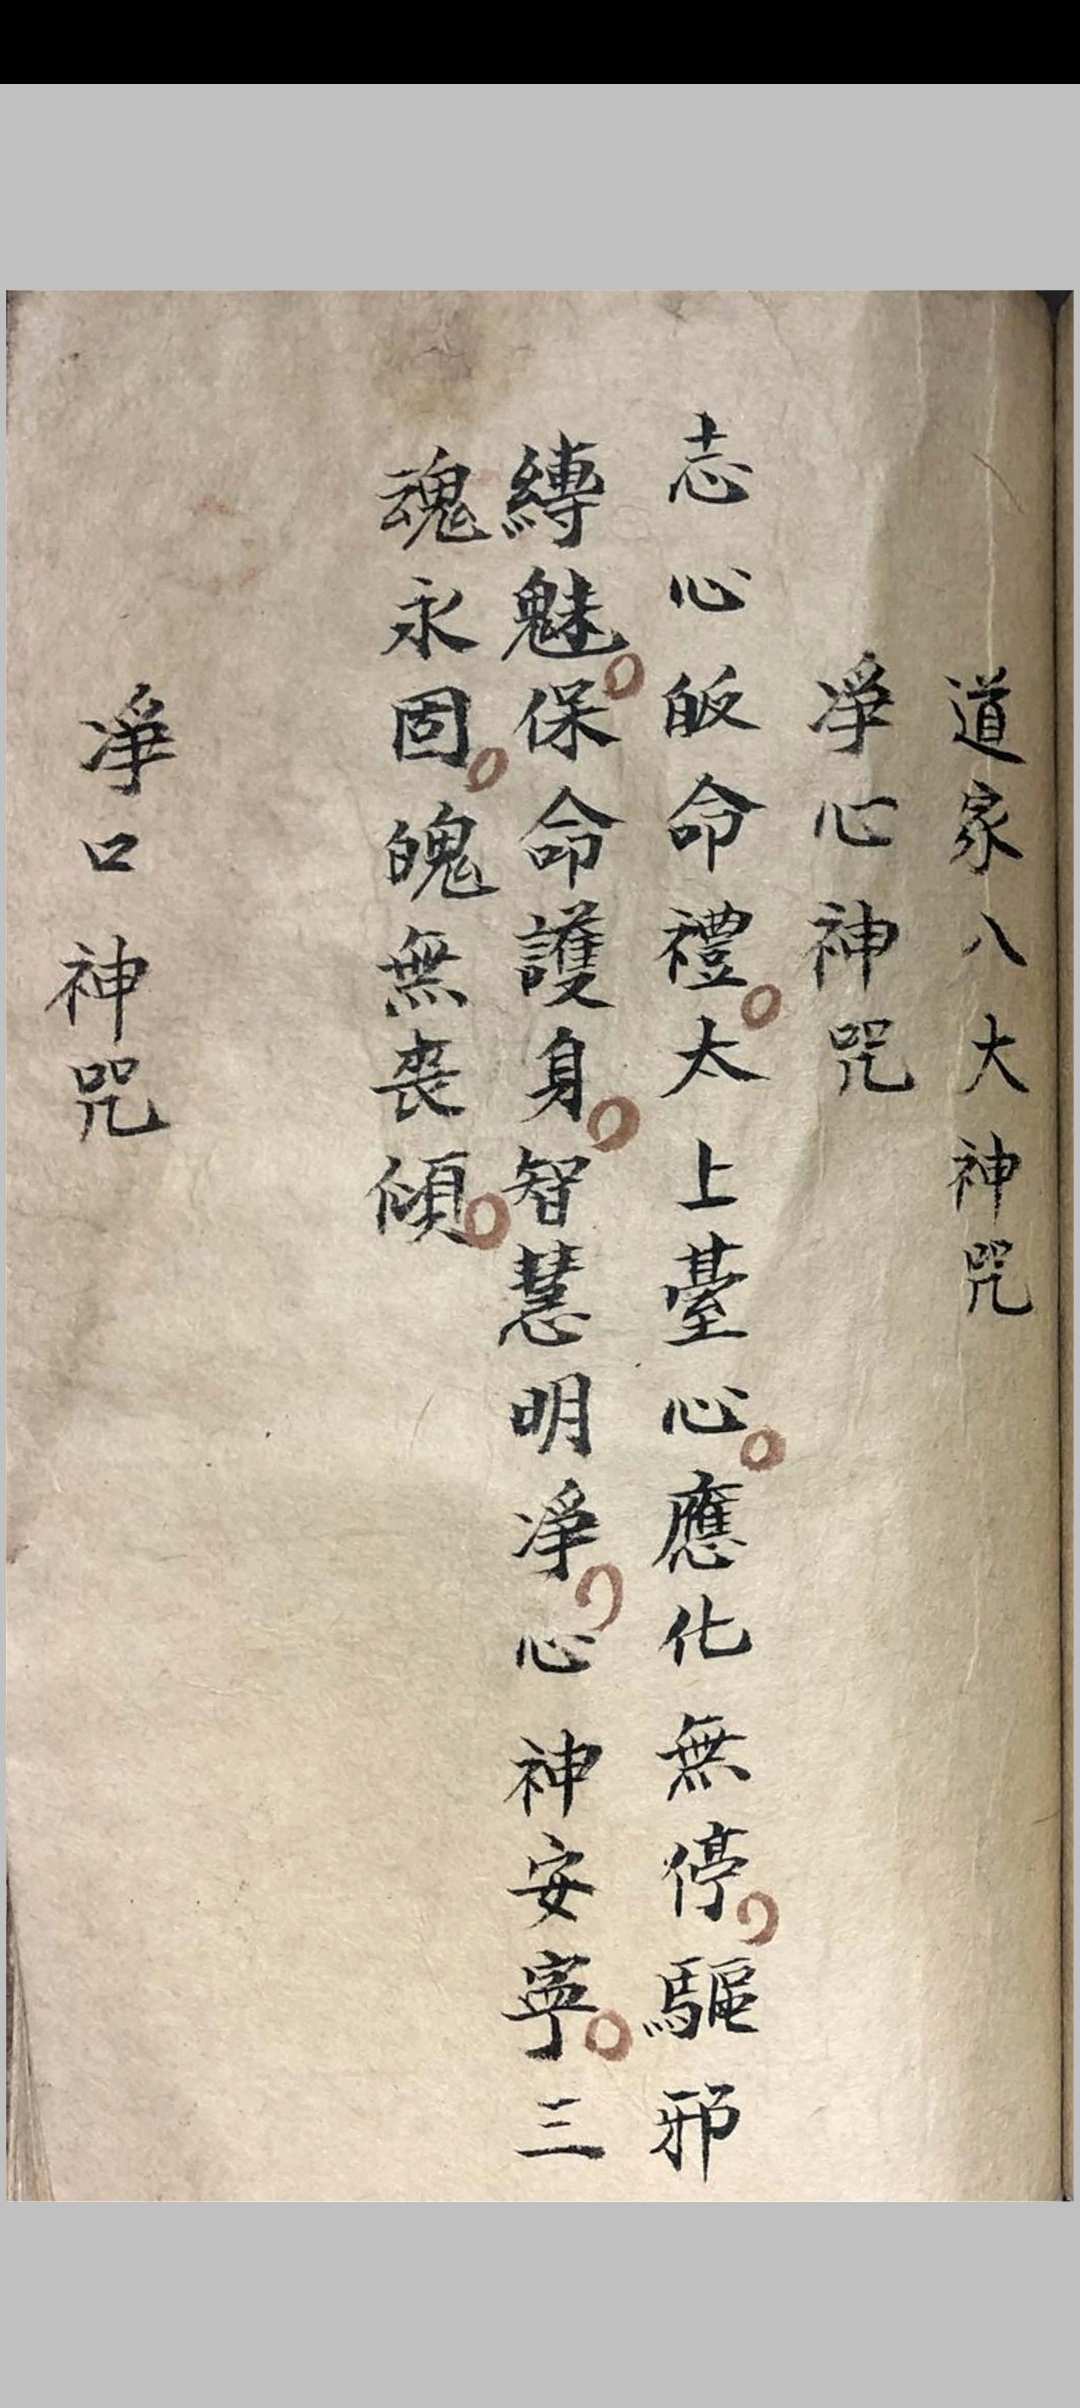 道家八大神咒
淨心神咒
志心皈命禮。太上臺心。應化無停。驅邪
縛魅。保命護身。智慧明淨。心神安寧。三
魂永固。魄無喪傾。
淨口神咒